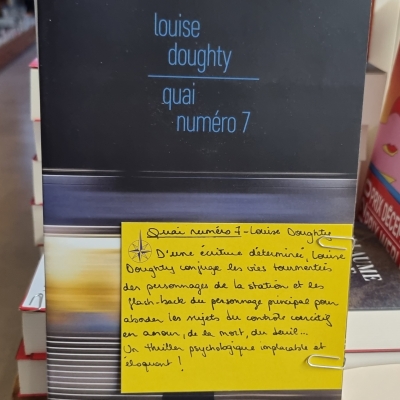 louise
doughty
quai
numéro 7
Quai numéro 7 - Louise Doughty
D'une écriture déterminée, Louise
Doughty conjugue les vies tourmentées
des personnages de la station et les
flash-back du personnage principal pour
aborder les sujets du contrôle coercitif
en amour, de la mort, du deuil...
Un thriller psychologique implacable et
éloquent !